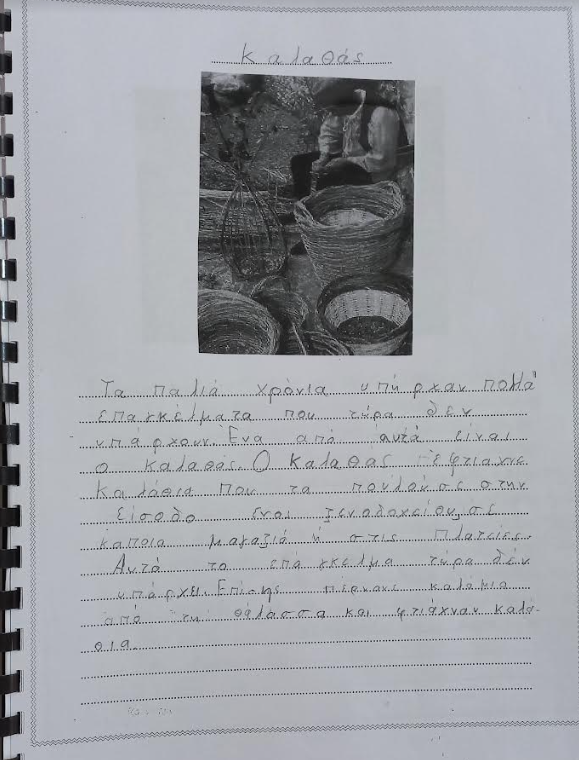 Καλαθάς
Τα παλιά χρόνια υπήρχαν πολλά
επαγκέλματα που τώρα δεν
υπάρχουν. Ένα από αυτά είναι
ο καλαθάς. Ο καλαθάς έφτιαχνε
καλάθια που τα πουλούσε στην
είσοδο ενός ξενοδοχείου, σε
κάποια μαγαζιά ή στις πλατείες.
Αυτό το επάγκελμα τώρα δεν
υπάρχει. Επίσης πέρνανε καλάμια
από τη θάλασσα και φτιάχναν καλά-
θια.